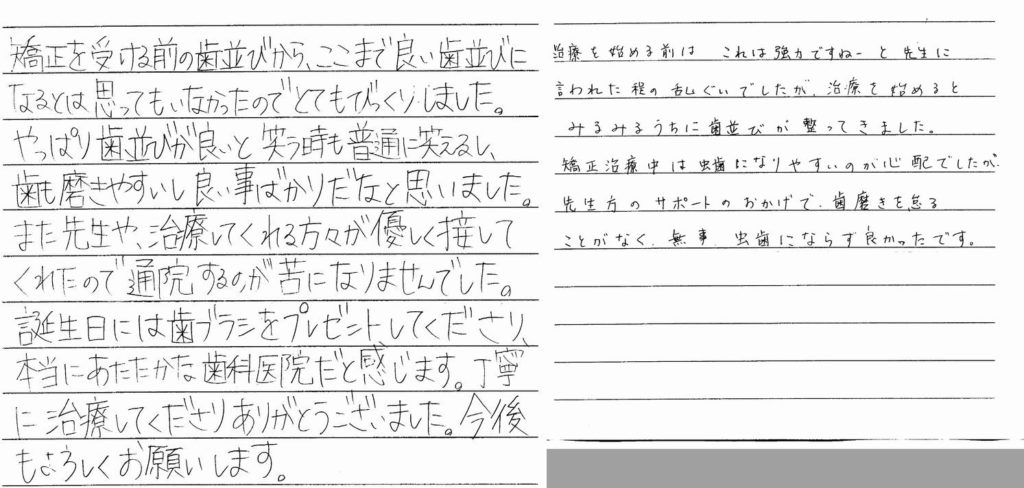 矯正を受ける前の歯並びから、ここまで良い歯並びに
なるとは思ってもいなかったのでとてもびっくりしました。
やっぱり歯並びが良いと笑う時も普通に笑えるし、
歯も磨きやすいし良い事ばかりだなと思いました。
また先生や、治療してくれる方々が優しく接して
くれたので通院するのが苦になりませんでした。
誕生日には歯ブラシをプレゼントしてくださり、
本当にあたたかな歯科医院だと感じます。丁寧
に治療してくださりありがとうございました。今後
もよろしくお願いします。
治療を始める前は これは強力ですねーと先生に
言われた程の乱ぐいでしたが、治療を始めると
みるみるうちに歯並びが整ってきました。
矯正治療中は虫歯になりやすいのが心配でしたが、
先生方のサポートのおかげで、歯磨きを怠る
ことがなく、無事、虫歯にならず良かったです。